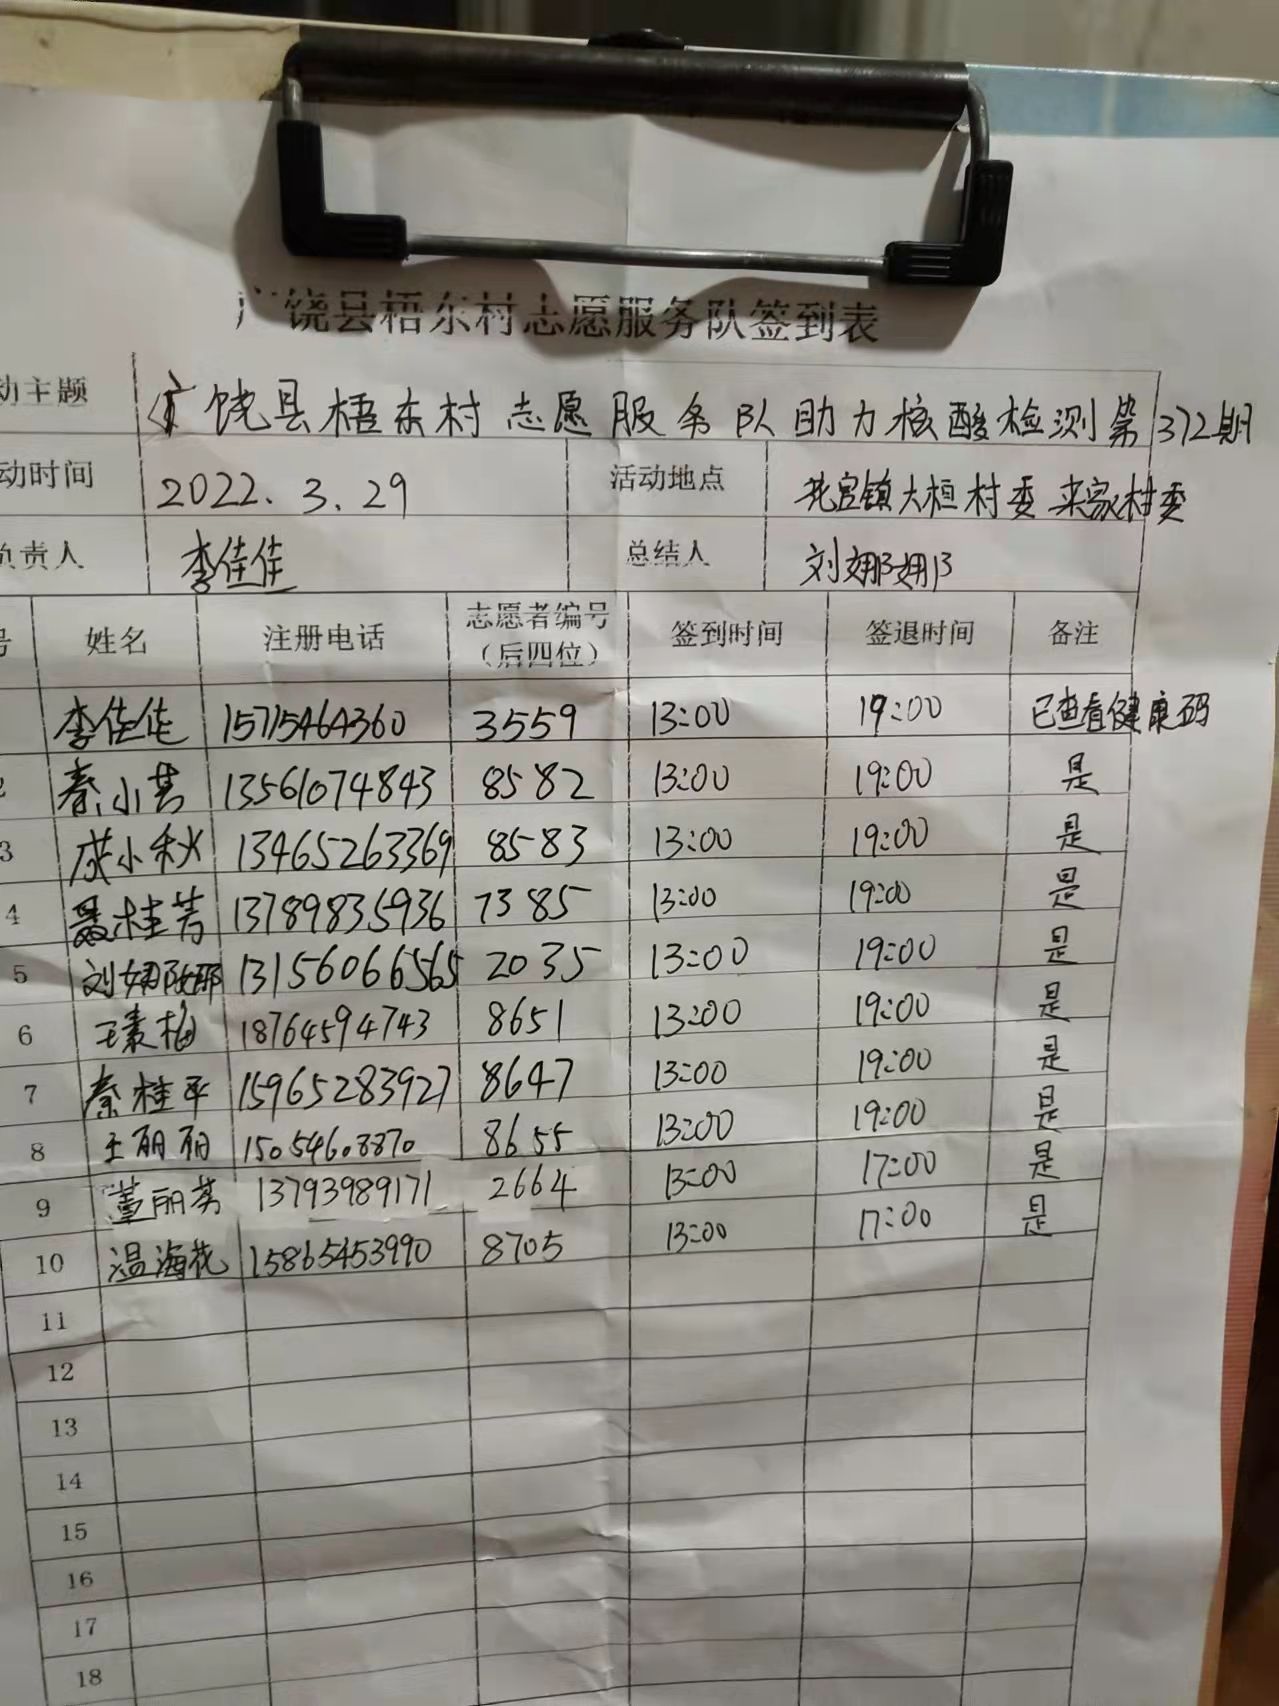 广饶县梧东村志愿服务队签到表
动主题 广饶县梧东村志愿服务队助力核酸检测第372期
动时间 2022.3.29 活动地点 花官镇大桓村委 宋家村委
负责人 李佳佳 总结人 刘娜娜
号 姓名 注册电话 志愿者编号（后四位） 签到时间 签退时间 备注
李佳佳 15715464360 3559 13:00 19:00 已查看健康码
2 秦小某 13561074843 8582 13:00 19:00 是
3 成小秋 13465263369 8583 13:00 19:00 是
4 聂桂芳 13789835936 7385 13:00 19:00 是
5 刘娜娜 13156066565 2035 13:00 19:00 是
6 王素梅 18764594743 8651 13:00 19:00 是
7 秦桂平 15965283927 8647 13:00 19:00 是
8 王丽丽 15054608870 8655 13:00 19:00 是
9 董丽英 13793989171 2664 13:00 17:00 是
10 温海花 15865453990 8705 13:00 17:00 是
11
12
13
14
15
16
17
18